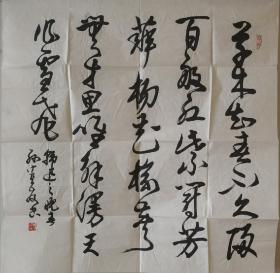 草木知春不久歸
百般紅紫鬥芳
菲楊花榆莢
無才思唯解漫天
作雪飛
韓愈之晚春